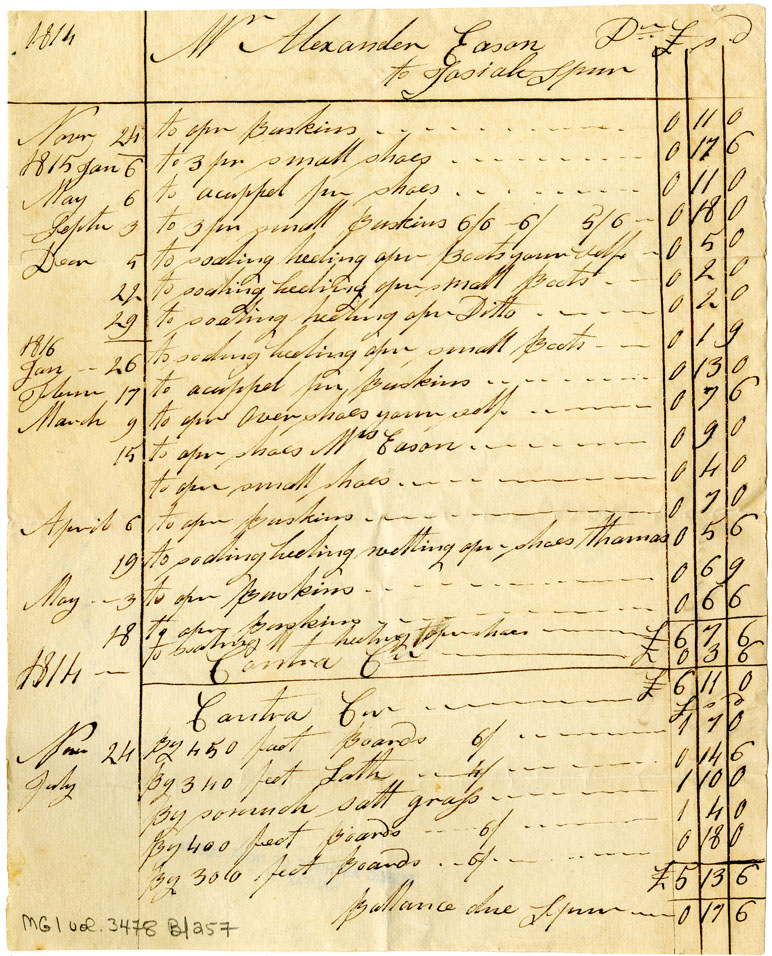 1814 Mr Alexander Eason Dr £ s d
to Josiah Spurr
Novr 24 to apr Buskins 0 11 0
1815 Jan 6 to 3 pr small shoes 0 17 6
May 6 to acuppel pr shoes 0 11 0
Septr 3 to 3 pr small Buskins 6/6 - 6/ 5/6 0 18 0
Decr 5 to soaling heeling apr Boots your self 0 5 0
22 to soaling heeling apr small Boots 0 2 0
29 to soaling heeling apr Ditto 0 2 0
1816
Jan 26 to soaling heeling apr small Boots 0 1 9
17 to acuppel pr Buskins 0 13 0
March 9 to apr over shoes your self 0 7 6
15 to apr shoes Mrs Eason 0 9 0
to apr small shoes 0 4 0
April 6 to apr Buskins 0 7 0
19 to soaling heeling welting apr shoes thomas 0 5 6
May 3 to apr Buskins 0 6 9
18 to apr Buskins 0 6 6
to soaling heeling apr shoes £ 6 7 6
1814 Contra Cr £ 0 3 6
£ 6 11 0
Contra Cr £ s d
Nov 24 By 450 feet Boards 6/ 1 7 0
July By 340 feet Lath 4/ 0 14 6
By somuch salt grass 1 10 0
By 400 feet Boards 6/ 1 4 0
By 300 feet Boards 6/ 0 18 0
£ 5 13 6
Ballance due Spurr 0 17 6
MG1 vol. 3478 B/257